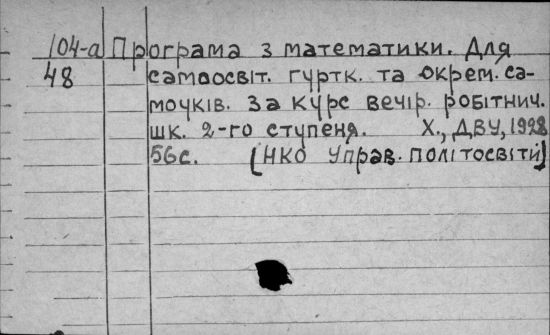 104-а Програма з математики. Для
48 самоосвіт. гуртк. та окрем. са-
мочків. За курс вечір. робітнич.
шк. 2-го ступеня. Х., ДВУ, 1928
56с. [НКО Управ. політосвіти]